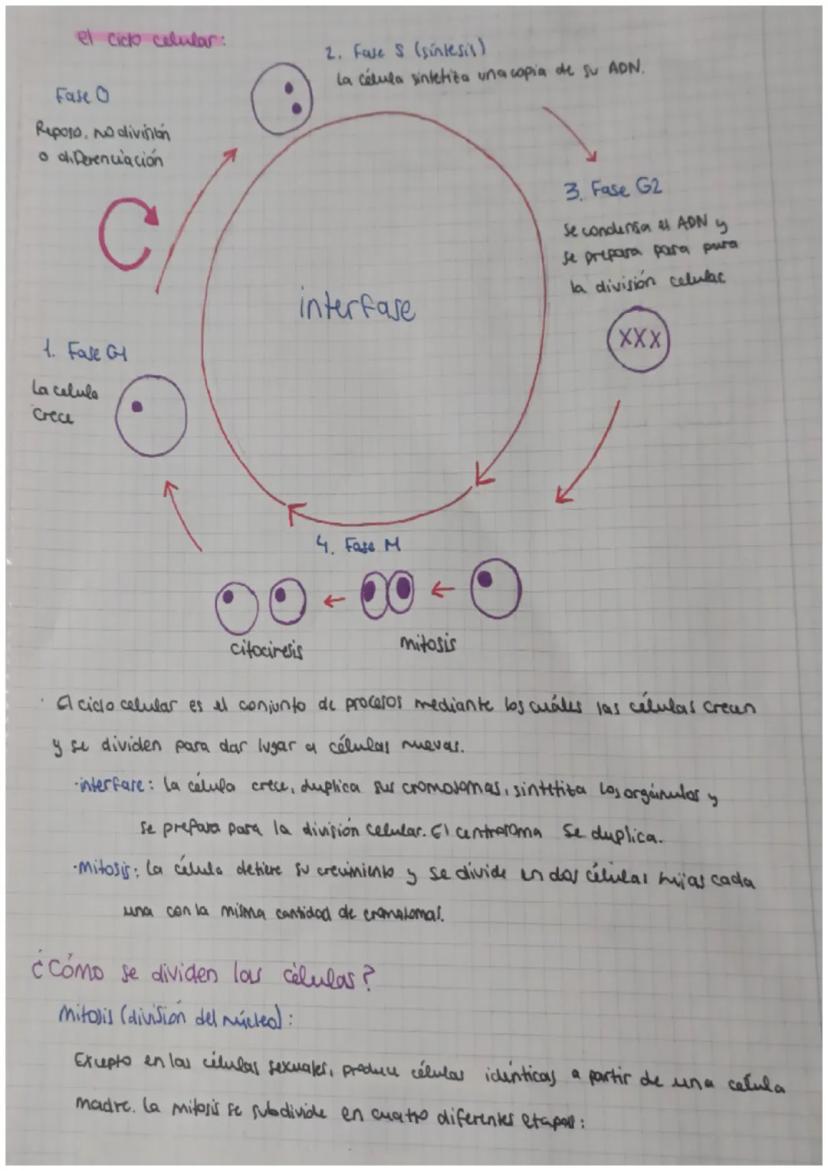 el ciclo celular:
2. Fase S (síntesis)
La célula sintetiza una copia de su ADN.
Fase 0
Reposo, no división
o diferenciación
3. Fase G2
Se condensa el ADN y
se prepara para para
la división celular
XXX
interfase
1. Fase G1
La celula
crece
4. Fase M
citocinesis
mitosis
· El ciclo celular es el conjunto de procesos mediante los cuáles las células crecen
y se dividen para dar lugar a células nuevas.
·interfase: la célula crece, duplica sus cromosomas, sintetiza los orgánulos y
se prepara para la división celular. El centrosoma se duplica.
·Mitosis: La célula detiene su crecimiento y se divide en dos células hijas cada
una con la misma cantidad de cromosomas.
¿Cómo se dividen las células?
Mitosis (división del núcleo):
Excepto en las células sexuales, produce células idénticas a partir de una celula
madre. La mitosis se subdivide en cuatro diferentes etapas: